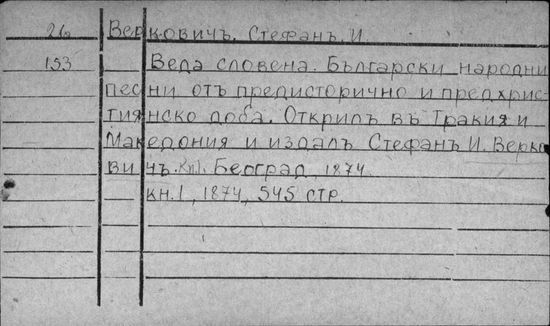 26 Верковичъ. Стефанъ И.
153 Веда словена. Български народни
песни отъ предисторично и предхрис-
тиянско доба. Открилъ въ Тракия и
Македония и издалъ Стефанъ И. Верко-
вичъ. Кн.1. Београд, 1874.
кн. 1, 1874, 545 стр.